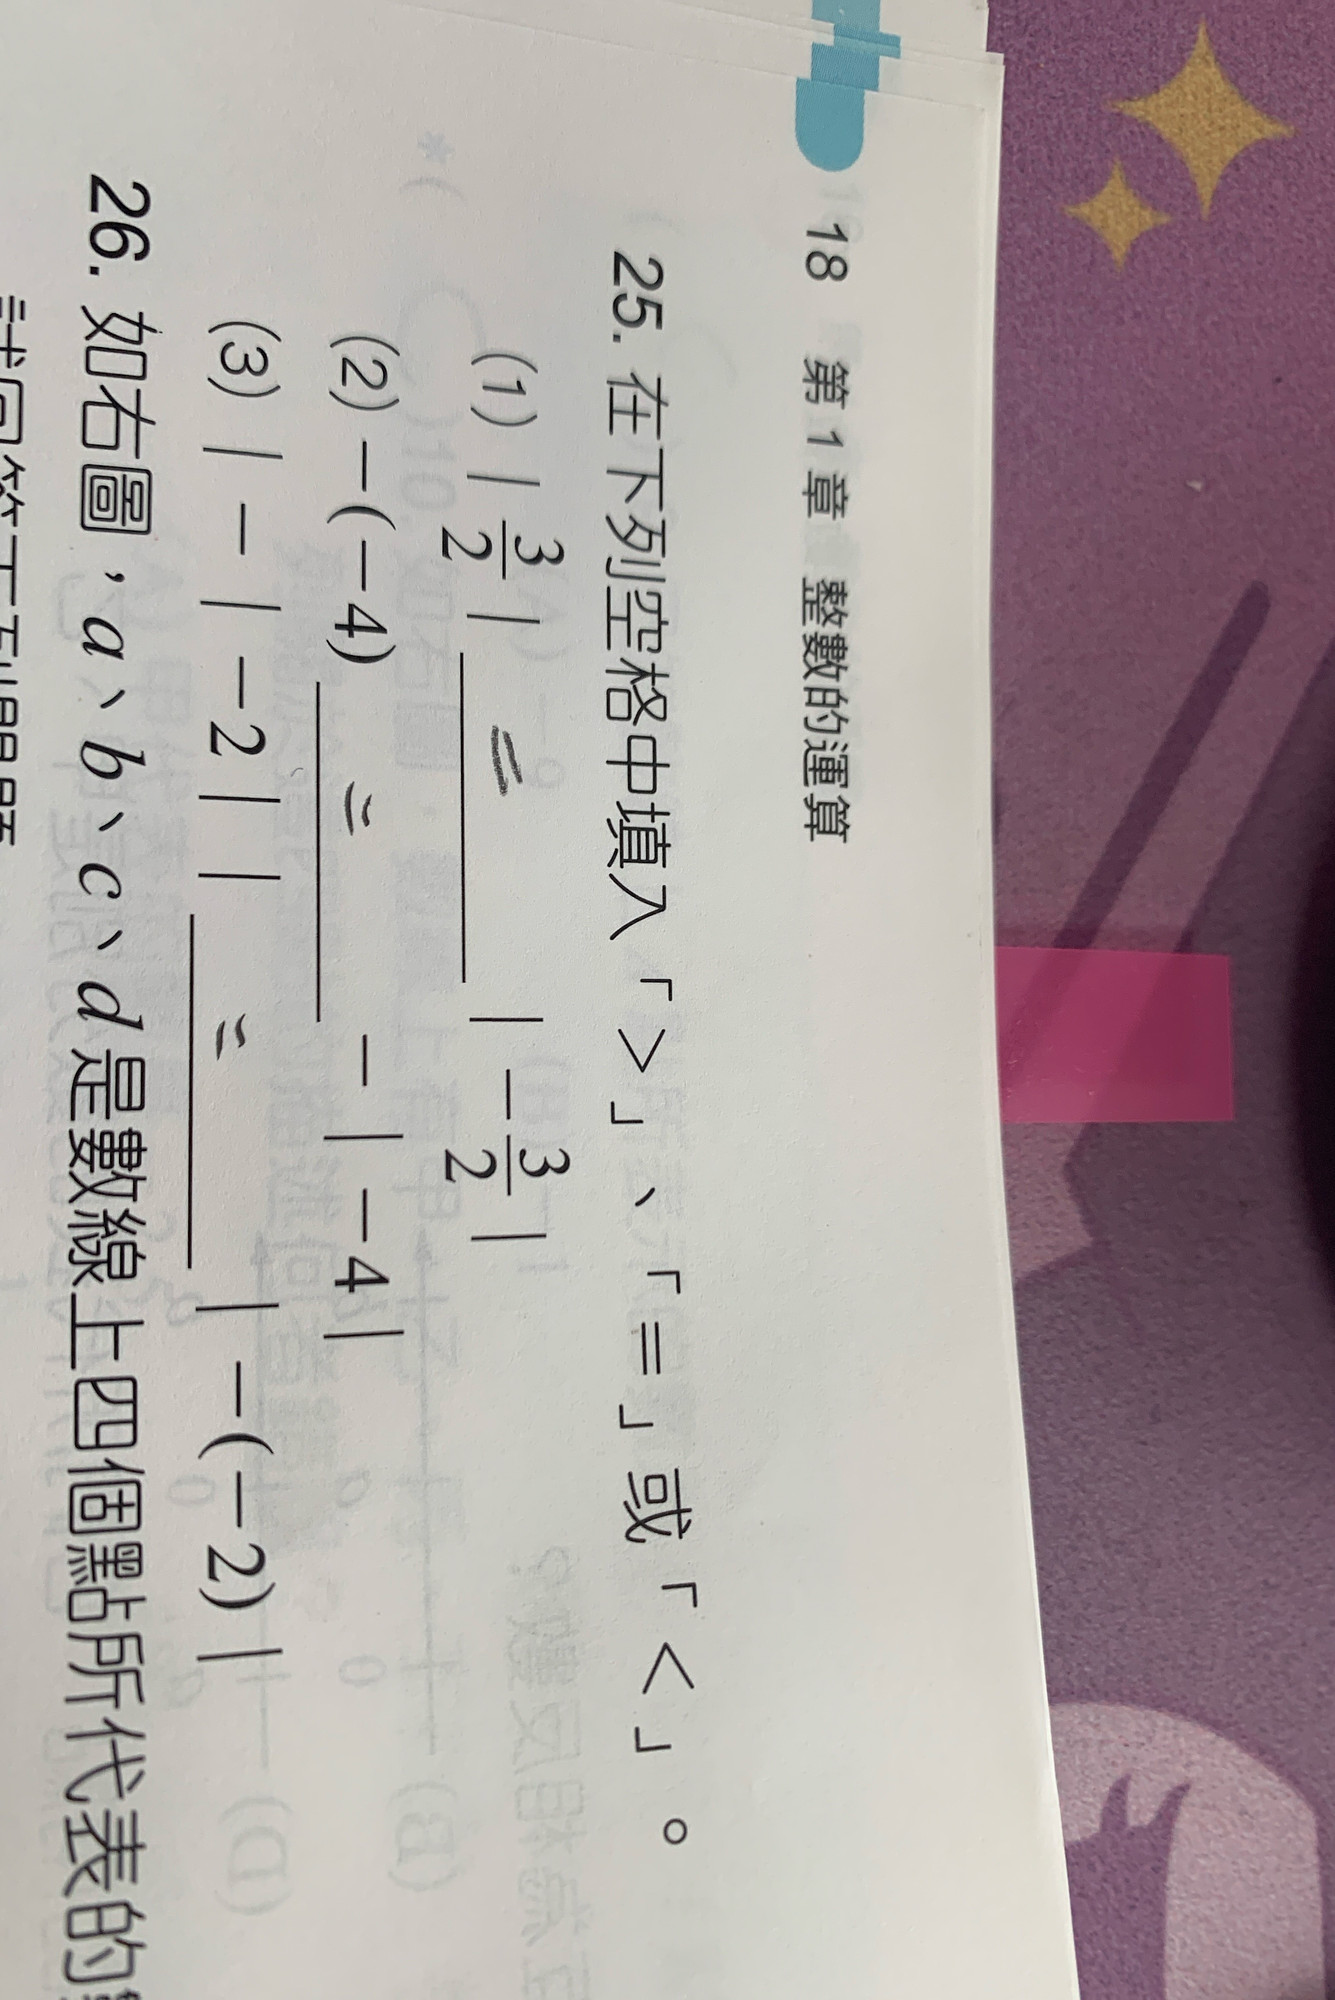 18 第1章 整數的運算
25. 在下列空格中填入「>」、「=」或「<」。
(1) | 3/2 | = | -3/2 |
(2) -(-4) = -| -4 |
(3) | -| -2 | | = | -(-2) |
26. 如右圖,a、b、c、d是數線上四個點所代表的